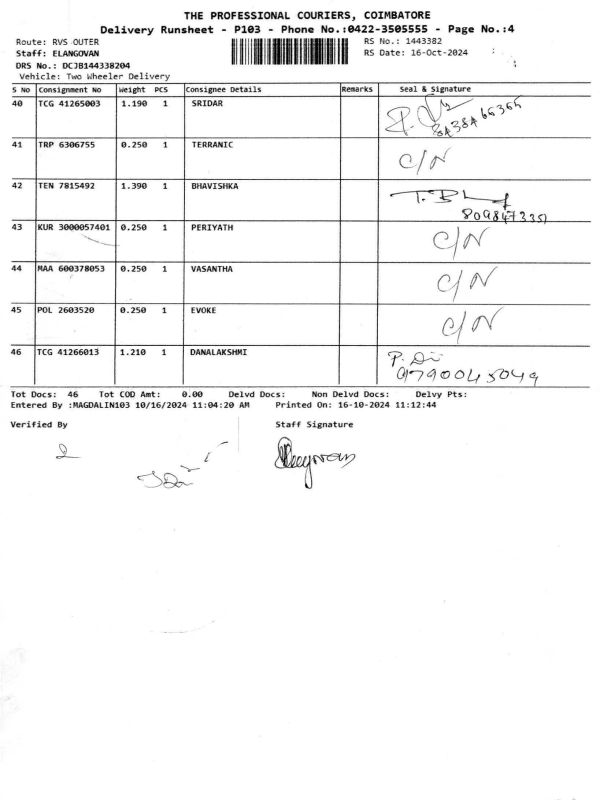 THE PROFESSIONAL COURIERS, COIMBATORE
Delivery Runsheet - P103 - Phone No.:0422-3505555 - Page No.:4
Route: RVS OUTER
RS No.: 1443382
Staff: ELANGOVAN
RS Date: 16-Oct-2024
DRS No.: DCJB144338204
Vehicle: Two Wheeler Delivery
S No Consignment No Weight PCS Consignee Details Remarks Seal & Signature
40 TCG 41265003 1.190 1 SRIDAR
41 TRP 6306755 0.250 1 TERRANIC C/N
42 TEN 7815492 1.390 1 BHAVISHKA
43 KUR 3000057401 0.250 1 PERIYATH C/N
44 MAA 600378053 0.250 1 VASANTHA C/N
45 POL 2603520 0.250 1 EVOKE C/N
46 TCG 41266013 1.210 1 DANALAKSHMI
9790045049
Tot Docs: 46 Tot COD Amt: 0.00 Delvd Docs: Non Delvd Docs: Delvy Pts:
Entered By :MAGDALIN103 10/16/2024 11:04:20 AM Printed On: 16-10-2024 11:12:44
Verified By Staff Signature